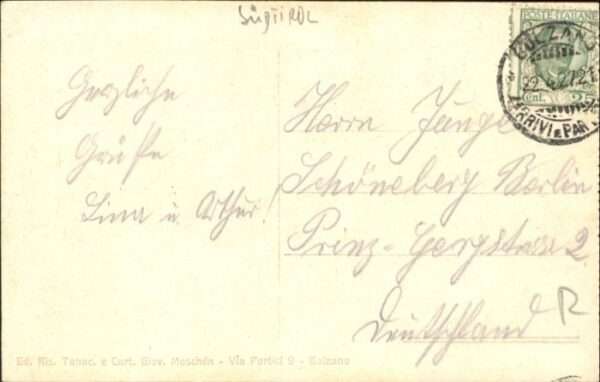 SÜDTIROL
POSTE ITALIANE
BOLZANO
22.4.27.21
ARRIVI E PAR
Cent. 25
Herzliche
Grüße
Lina u. Arthur!
Herrn Junge
Schöneberg Berlin
Prinz-Georgstrasse 2
Deutschland
R
Ed. Ris. Tabac. e Cart. Giov. Moschén - Via Portici 9 - Bolzano